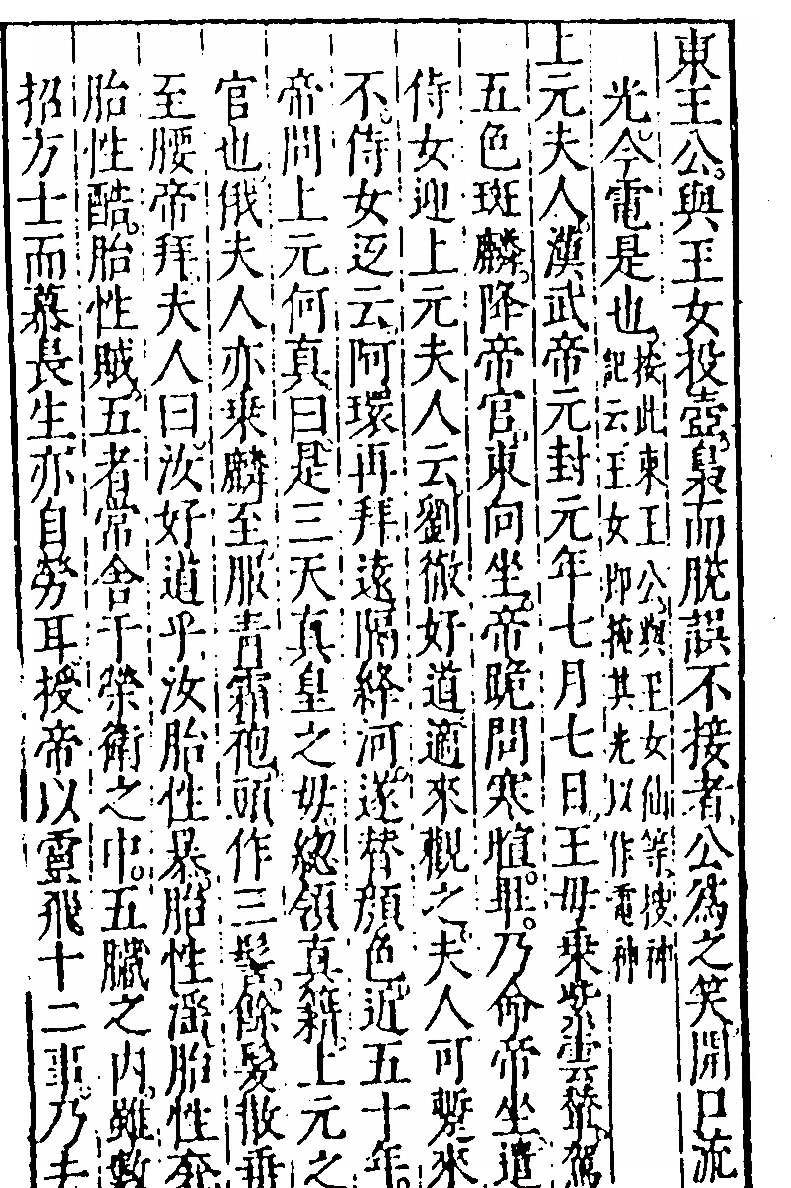 東王公。與玉女投壺。梟而脫誤不接者。公爲之笑。開口流
光。今電是也。按此東王公。與玉女仙等。搜神
記云。玉女即掩其光以作電神
上元夫人。漢武帝元封元年七月七日。王母乗紫雲輦。駕
五色斑麟。降帝宮。東向坐。帝跪問寒暄畢。乃命帝坐。遣
侍女迎上元夫人云。劉徹好道。適來觀之。夫人可蹔來
不。侍女返云。阿環再拜。遠隔絳河。遂替顏色。近五十年。
帝問上元何真。曰。是三天真皇之母。總領真籍。上元之
官也。俄夫人亦乗麟至。服青霜袍。頭作三髻。餘髮散垂
至腰。帝拜。夫人曰。汝好道乎。汝胎性暴。胎性淫。胎性奢。
胎性酷。胎性賊。五者常舍于榮衛之中。五臟之內。雖數
招方士而慕長生。亦自勞耳。授帝以靈飛十二事。乃去